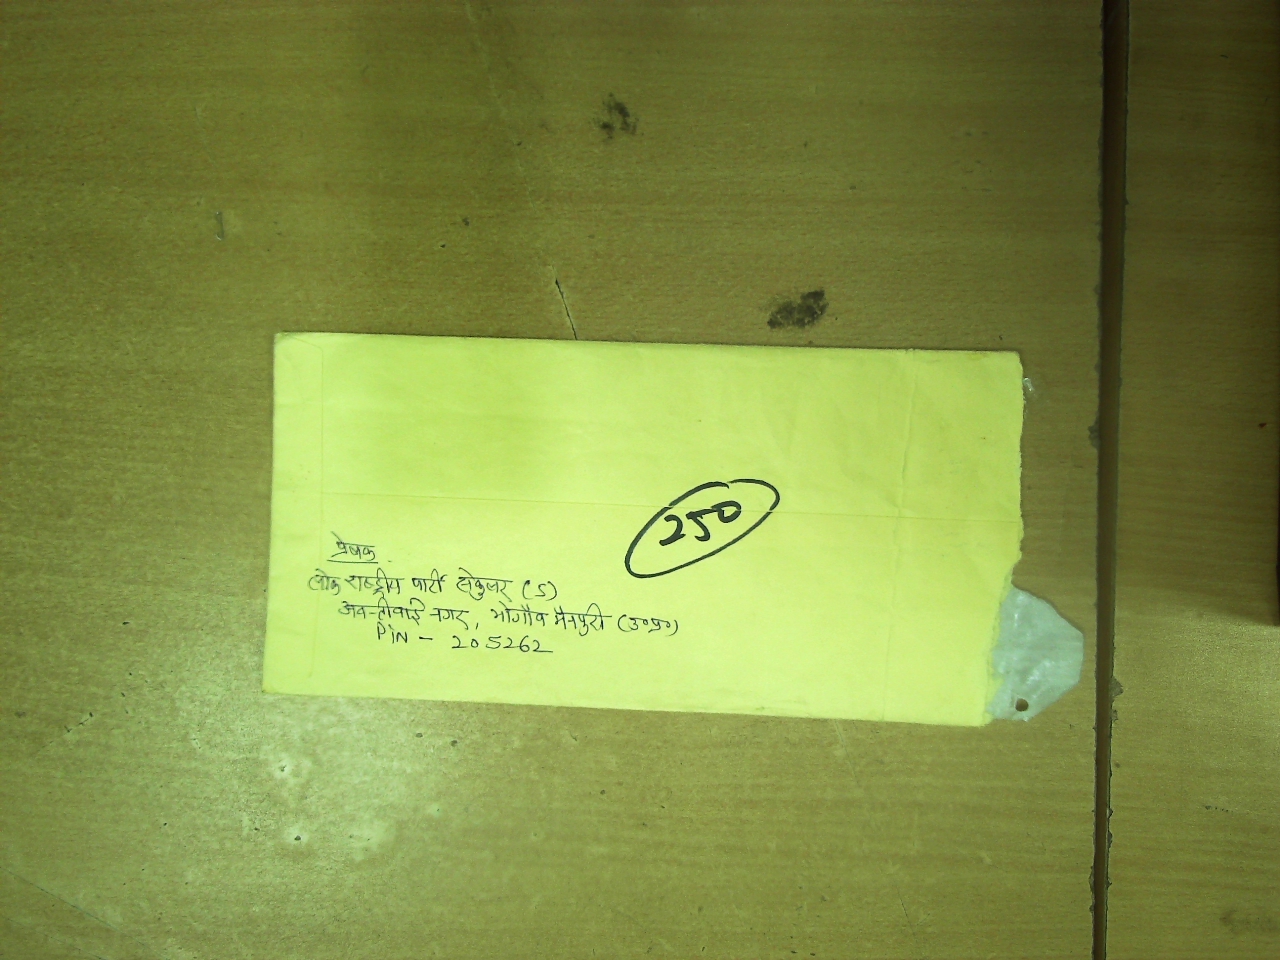 250
प्रेषक
लोक राष्ट्रीय पार्टी सेकुलर (S)
अवन्तीवाई नगर, भोगाँव मैनपुरी (उ०प्र०)
PiN - 205262